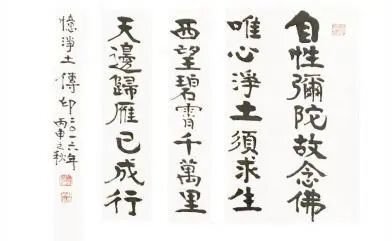 自性彌陀故念佛
唯心淨土須求生
西望碧霄千萬里
天邊歸雁已成行
憶淨土 傳印二〇一六年
丙申之秋